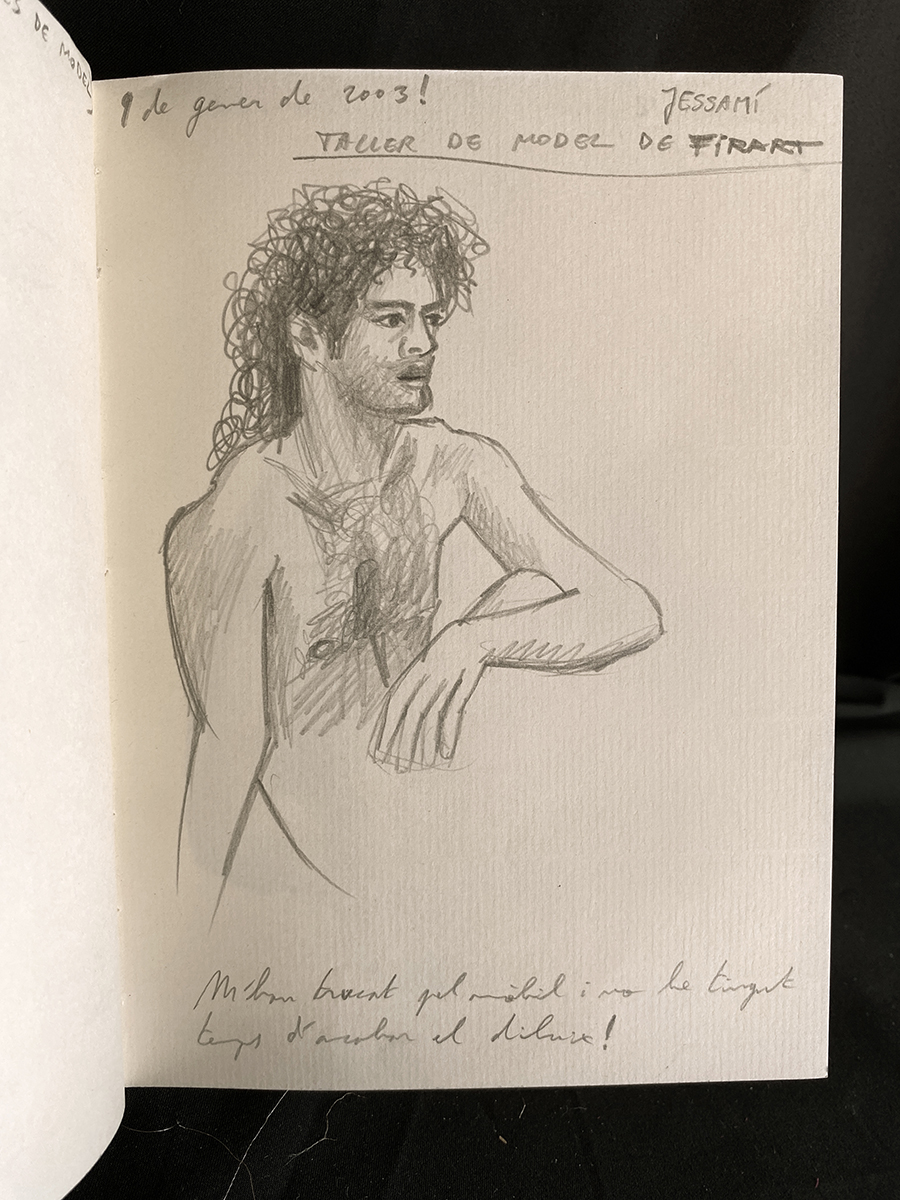 ES DE MODEL
9 de gener de 2003!
JESSAMÍ
TALLER DE MODEL DE FIRART
M'han trucat pel mòbil i no he tingut
temps d'acabar el dibuix!